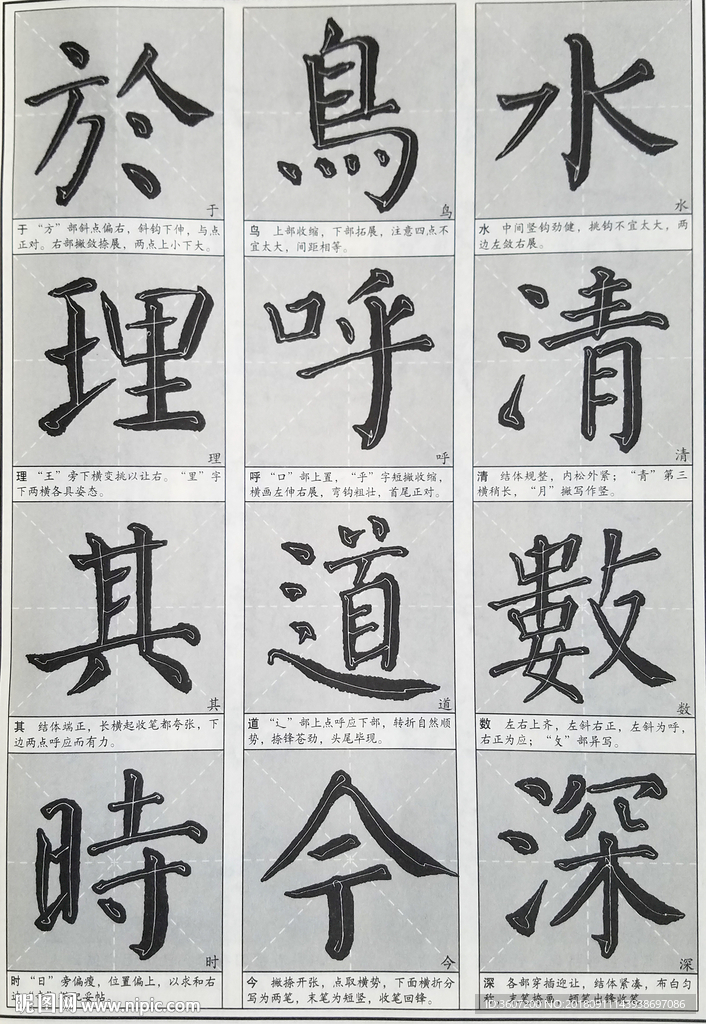 水
水
水 中间竖钩劲健，挑钩不宜太大，两
边左敛右展。
清
清
清 结体规整，内松外紧；“青”第三
横稍长，“月”撇写作竖。
數
数
数 左右上齐，左斜右正，左斜为呼，
右正为应；“攵”部异写。
深
深
深 各部穿插迎让，结体紧凑，布白匀
鳥
鸟
鸟 上部收缩，下部拓展，注意四点不
宜太大，间距相等。
呼
呼
呼 “口”部上置，“乎”字短撇收缩，
横画左伸右展，弯钩粗壮，首尾正对。
道
道
道 “辶”部上点呼应下部，转折自然顺
势，捺锋苍劲，头尾毕现。
今
今
今 撇捺开张，点取横势，下面横折分
写为两笔，末笔为短竖，收笔回锋。
於
于
于 “方”部斜点偏右，斜钩下伸，与点
正对。右部撇敛捺展，两点上小下大。
理
理
理 “王”旁下横变挑以让右。“里”字
下两横各具姿态。
其
其
其 结体端正，长横起收笔都夸张，下
边两点呼应而有力。
時
时
时 “日”旁偏瘦，位置偏上，以求和右
妥帖。
昵图网 www.nipic.com
ID:3607200 NO:20180911143938697086